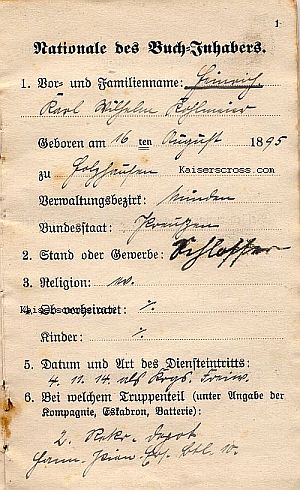 1
Nationale des Buch-Inhabers.
1. Vor- und Familienname: Heinrich
Karl Wilhelm Kohlmeier
Geboren am 16 ten August 1895
zu Holzhausen
Kaiserscross.com
Verwaltungsbezirk: Minden
Bundesstaat: Preußen
2. Stand oder Gewerbe: Schlosser
3. Religion: ev.
4. Ob verheiratet: ./.
Kinder: ./.
5. Datum und Art des Diensteintritts:
4. 11. 14 als Krgs. Freiw.
6. Bei welchem Truppenteil (unter Angabe der
Kompagnie, Eskadron, Batterie):
2. Rekr. Depot
Hann. Pion. Ers. Btl. 10.